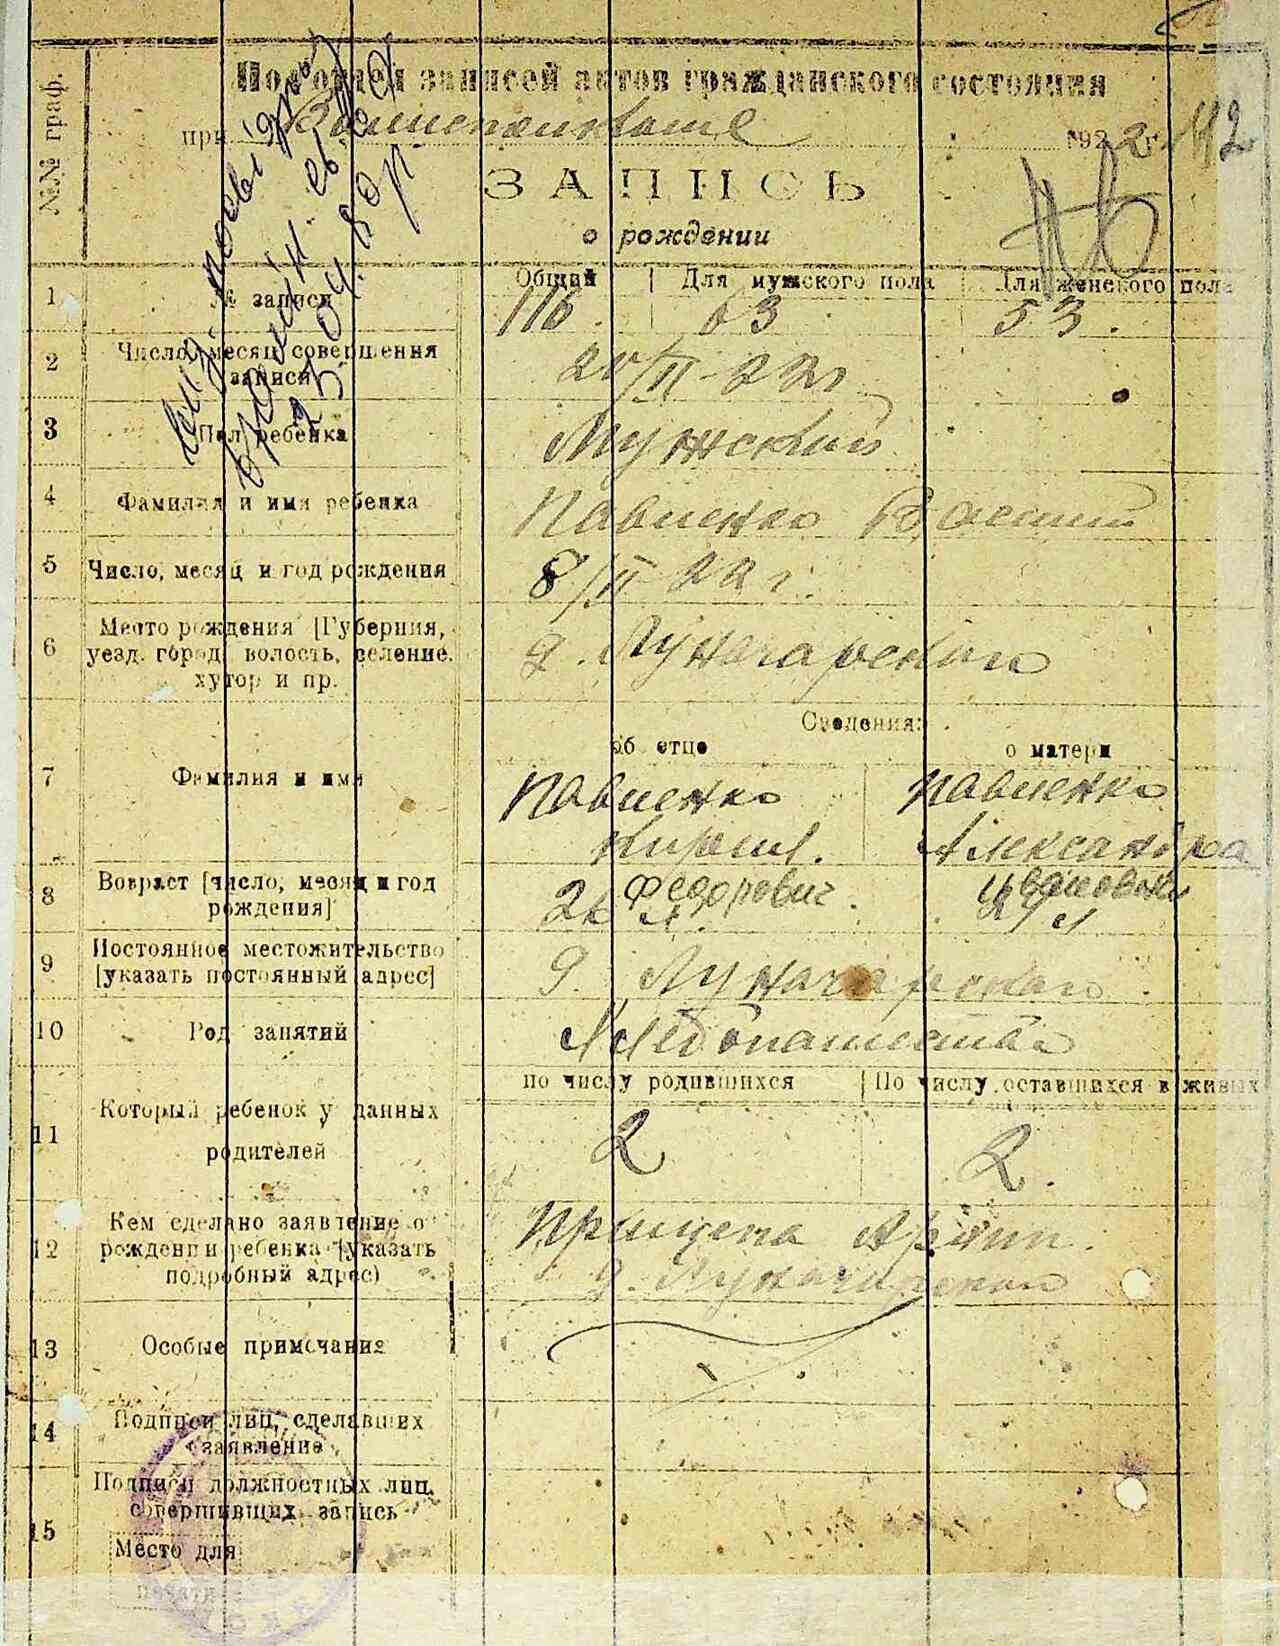 №№ граф.
Подотдел записей актов гражданского состояния
при 1922 г. 112
ЗАПИСЬ
о рождении
Общий Для мужского пола Для женского пола
1 № записи 116. 63 53.
2 Число, месяц совершения
записи 20/II-22г
3 Пол ребенка Мужской
4 Фамилия и имя ребенка Павленко Васил
5 Число, месяц и год рождения 8/II 22 г.
6 Место рождения [Губерния,
уезд. город, волость, селение.
хутор и пр. д.
Сведения:
об отце о матери
7 Фамилия и имя Павленко Павленко
Кирил. Александра
Федорович Ивановна
8 Возраст [число, месяц и год
рождения] 26 л. л
9 Постоянное местожительство
[указать постоянный адрес] д.
10 Род занятий Хлебопашество
по числу родившихся По числу оставшихся в живых
11 Который ребенок у данных
родителей 2 2.
12 Кем сделано заявление о
рождении ребенка (указать
подробный адрес) Прищепа
13 Особые примечания
14 Подписи лиц, сделавших
заявление
15 Подписи должностных лиц,
совершивших запись
Место для
печати